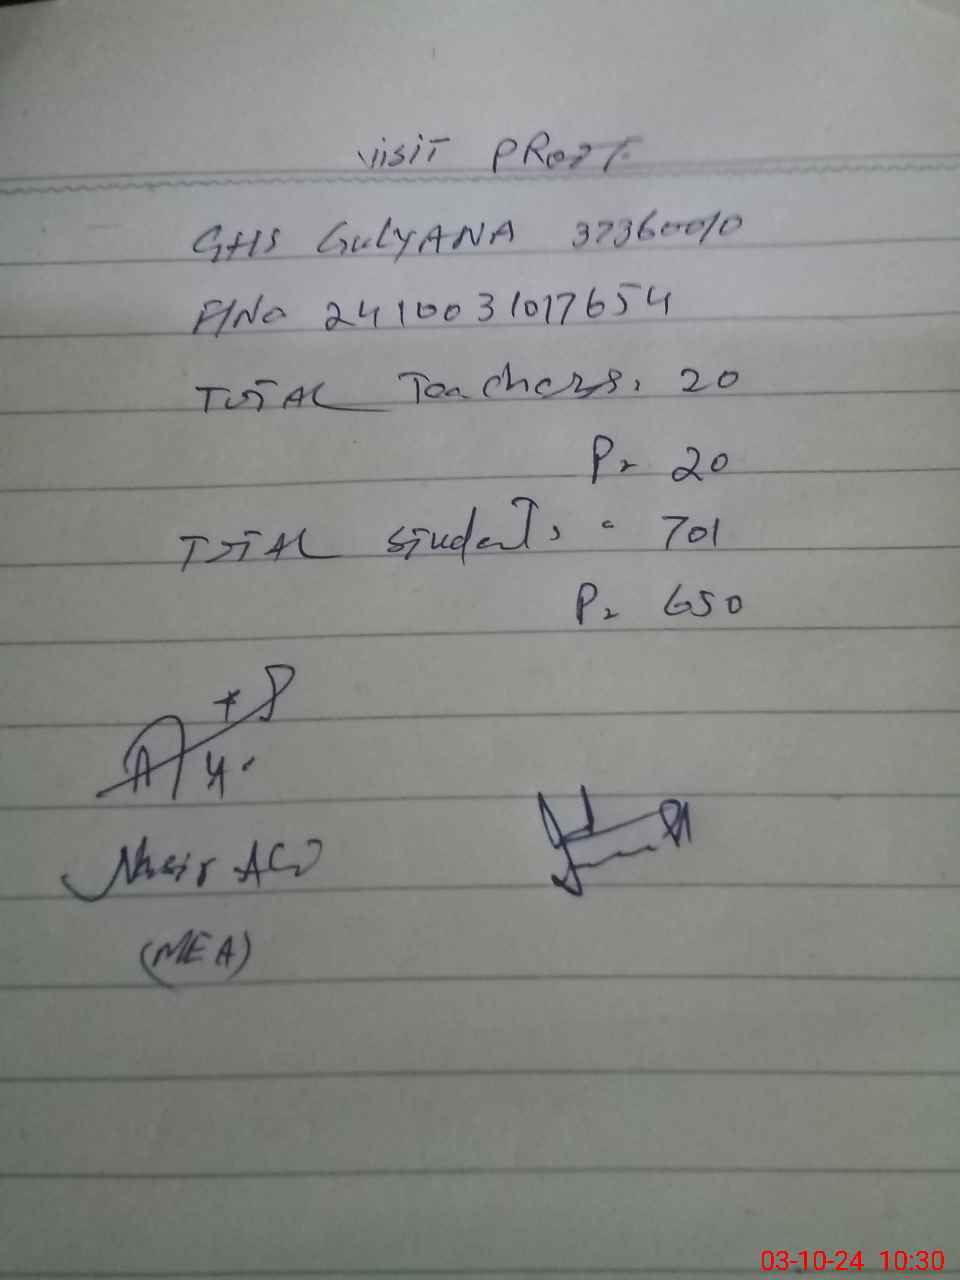 Visit PROOF
GHS GulyANA 37360010
F/No 2410031017654
TOTAL Teachers. 20
P= 20
TOTAL students = 701
P= 650
Nasir ALi
(MEA)
03-10-24 10:30